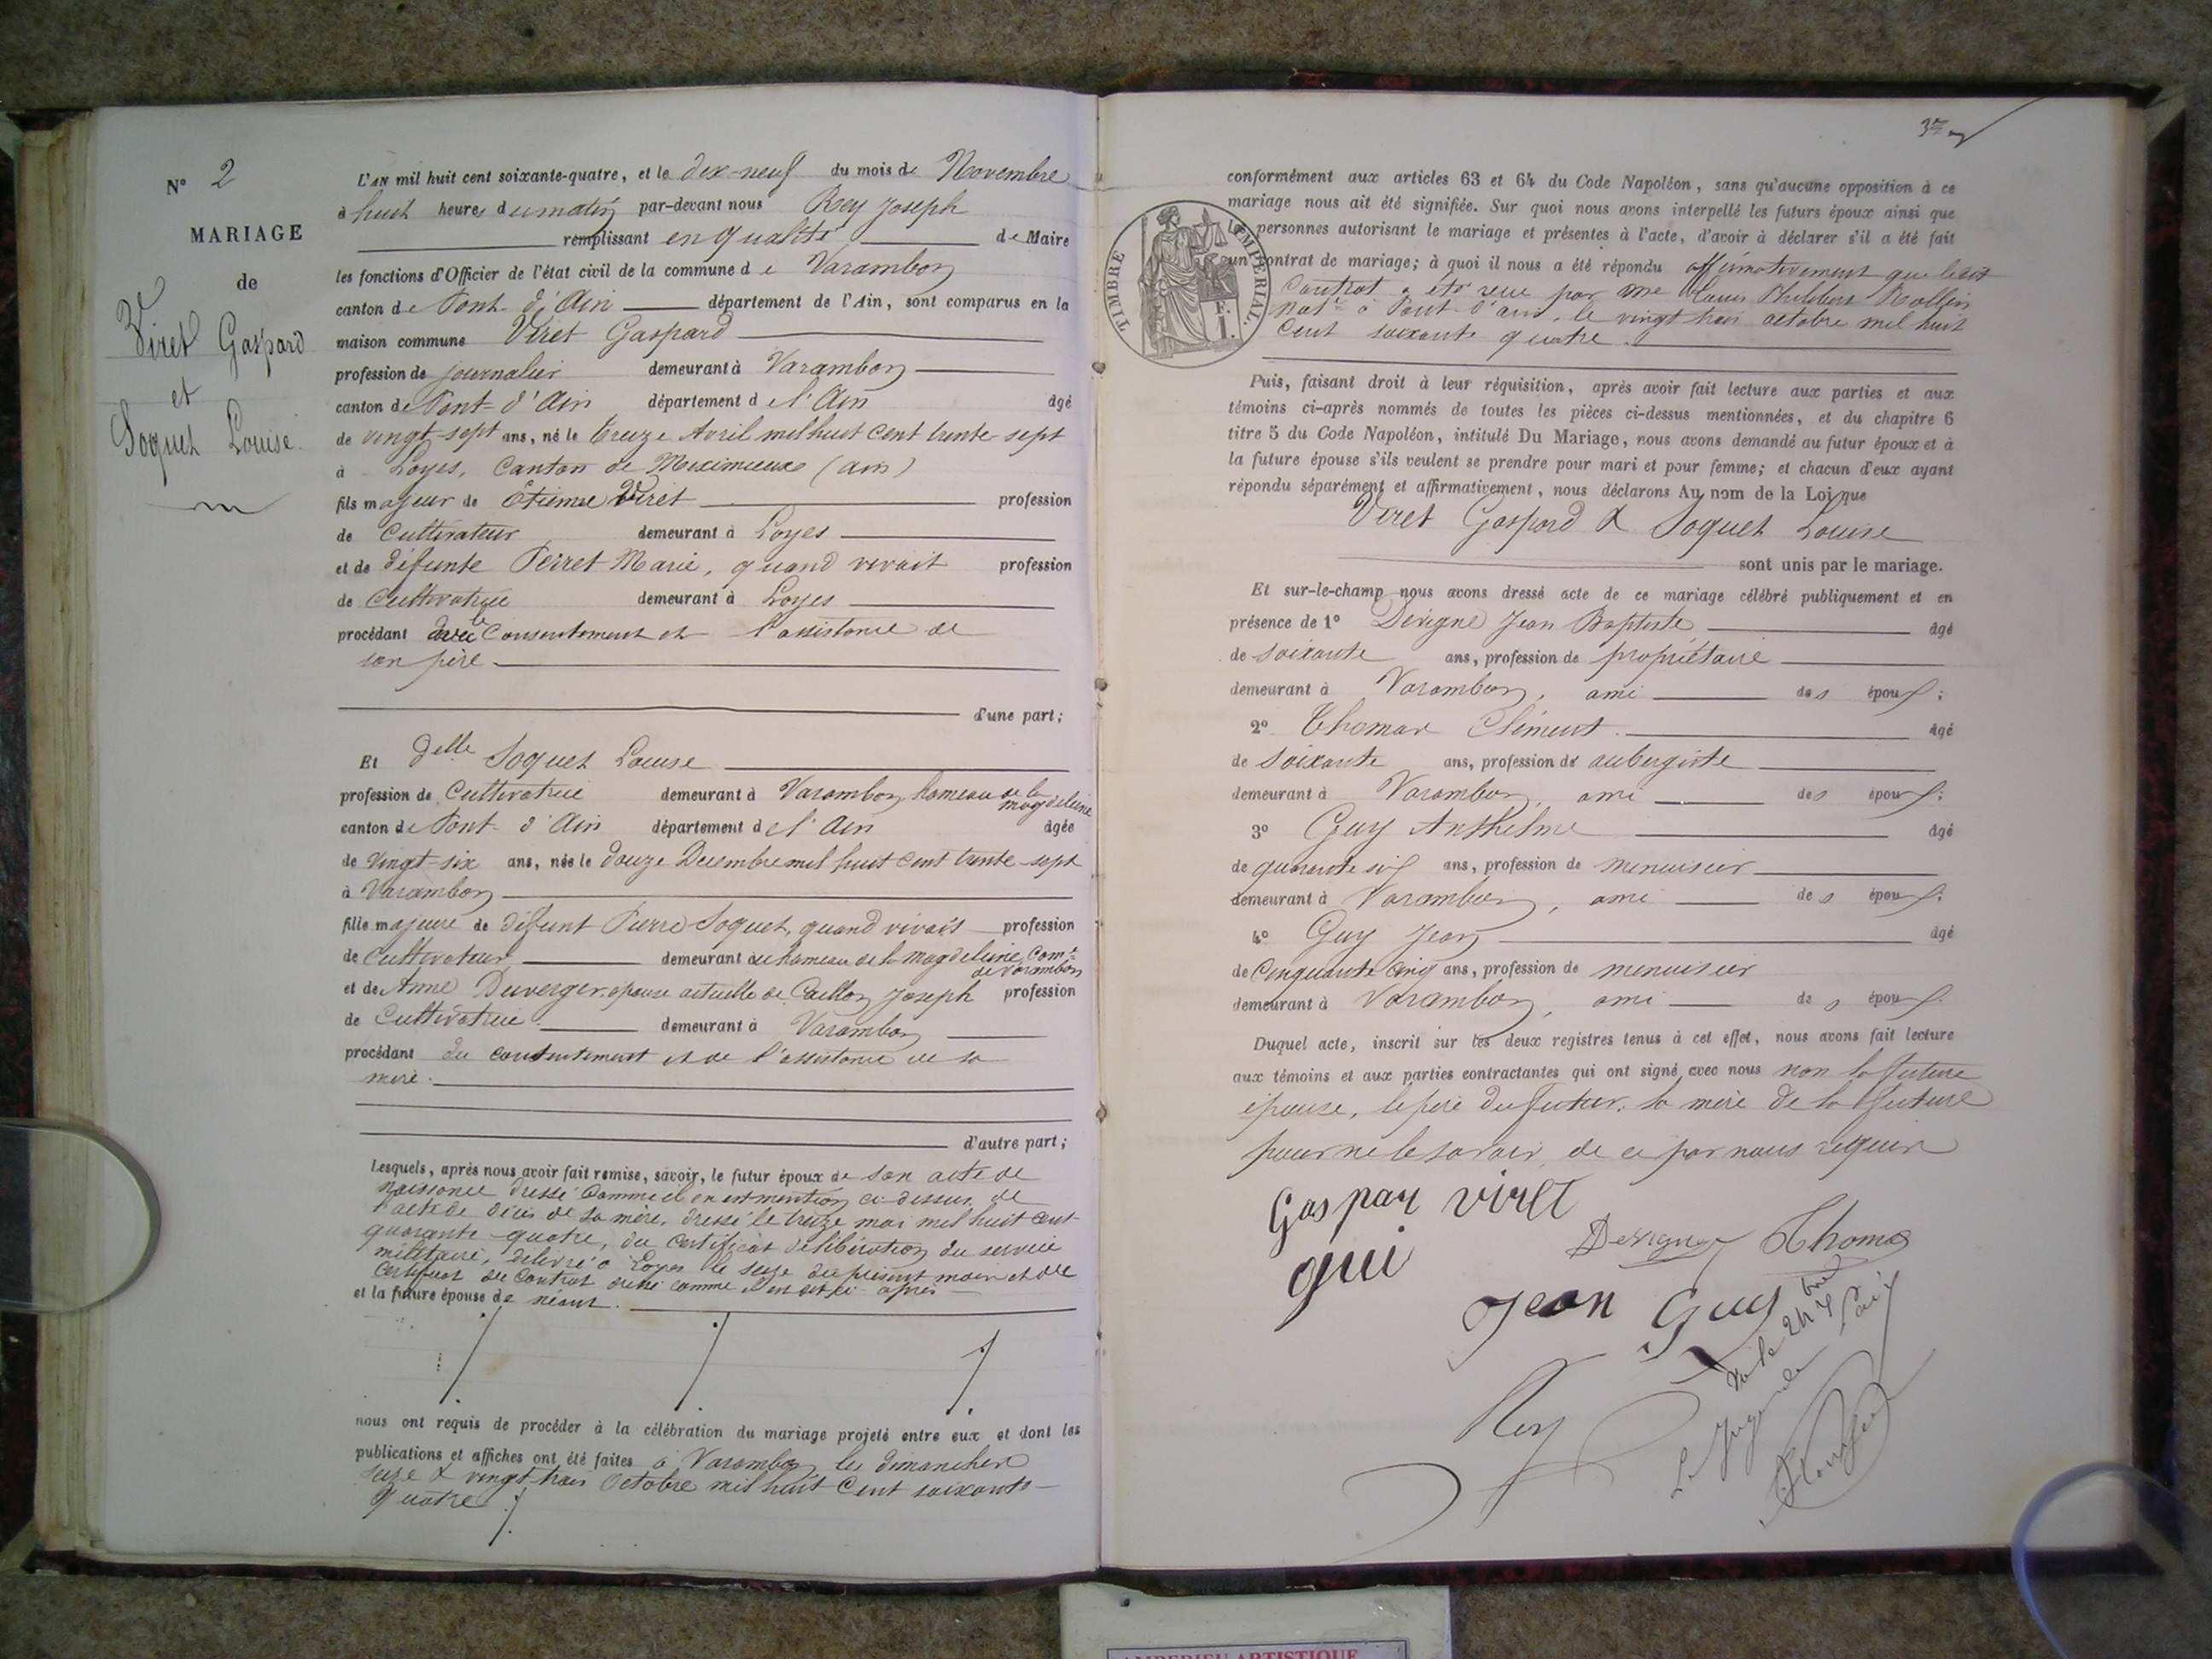 N° 2
MARIAGE
de
Viret Gaspard
et
Soquet Louise.
L'AN mil huit cent soixante-quatre, et le dix-neuf du mois de Novembre
à huit heures du matin par-devant nous Rey Joseph
remplissant en qualité de Maire
les fonctions d'Officier de l'état civil de la commune de Varambon
canton de Pont-d'Ain département de l'Ain, sont comparus en la
maison commune Viret Gaspard
profession de journalier demeurant à Varambon
canton de Pont-d'Ain département de l'Ain âgé
de vingt-sept ans, né le treize Avril mil huit cent trente-sept
à Loyes, canton de Meximieux (ain)
fils majeur de Etienne Viret profession
de Cultivateur demeurant à Loyes
et de défunte Perret Marie, quand vivait profession
de Cultivatrice demeurant à Loyes
procédant avec le Consentement et l'assistance de
son père
d'une part;
Et Delle Soquet Louise
profession de Cultivatrice demeurant à Varambon, hameau de la magdeleine
canton de Pont-d'Ain département de l'Ain âgée
de vingt-six ans, née le douze Decembre mil huit cent trente-sept
à Varambon
fille majeure de défunt Pierre Soquet, quand vivait profession
de Cultivateur demeurant au hameau de la magdeleine, Com.e de Varambon
et de Anne Duverger, epouse actuelle de Caillon Joseph profession
de Cultivatrice demeurant à Varambon
procédant du consentement et de l'assistance de sa
mère.
d'autre part;
Lesquels, après nous avoir fait remise, savoir, le futur époux de son acte de
naissance dressé comme il en est mention ci-dessus, de
l'acte de décès de sa mère, dressé le treize mai mil huit cent
quarante-quatre, du certificat de libération du service
militaire, délivré à Loyes le seize du présent mois et du
certificat du contrat comme il en est ci-après
et la future épouse de néant.
nous ont requis de procéder à la célébration du mariage projeté entre eux et dont les
publications et affiches ont été faites à Varambon les dimanches
seize & vingt-trois Octobre mil huit cent soixante-
quatre
37
conformément aux articles 63 et 64 du Code Napoléon, sans qu'aucune opposition à ce
mariage nous ait été signifiée. Sur quoi nous avons interpellé les futurs époux ainsi que
les personnes autorisant le mariage et présentes à l'acte, d'avoir à déclarer s'il a été fait
un contrat de mariage; à quoi il nous a été répondu affirmativement que ledit
Contrat a été reçu par me Louis Philibert Rollin
not.re à Pont-d'ain, le vingt trois octobre mil huit
cent soixante quatre.
TIMBRE IMPÉRIAL
1 F.
Puis, faisant droit à leur réquisition, après avoir fait lecture aux parties et aux
témoins ci-après nommés de toutes les pièces ci-dessus mentionnées, et du chapitre 6
titre 5 du Code Napoléon, intitulé Du Mariage, nous avons demandé au futur époux et à
la future épouse s'ils veulent se prendre pour mari et pour femme; et chacun d'eux ayant
répondu séparément et affirmativement, nous déclarons Au nom de la Loi que
Viret Gaspard & Soquet Louise
sont unis par le mariage.
Et sur-le-champ nous avons dressé acte de ce mariage célébré publiquement et en
présence de 1° Dévigne Jean Baptiste âgé
de soixante ans, profession de propriétaire
demeurant à Varambon, ami des époux;
2° Thomas Clément. âgé
de soixante ans, profession de aubergiste
demeurant à Varambon, ami des époux;
3° Guy Anthelme âgé
de quarante six ans, profession de menuisier
demeurant à Varambon, ami des époux;
4° Guy Jean âgé
de Cinquante cinq ans, profession de menuisier
demeurant à Varambon, ami des époux.
Duquel acte, inscrit sur les deux registres tenus à cet effet, nous avons fait lecture
aux témoins et aux parties contractantes qui ont signé avec nous non la future
épouse, le père du futur, la mère de la future
pour ne le savoir, de ce par nous requis
Gaspar viret
Devigne Thomas
gui
Jean Guy
Rey
Le Juge de Paix
AMBERIEU ARTISTIQUE